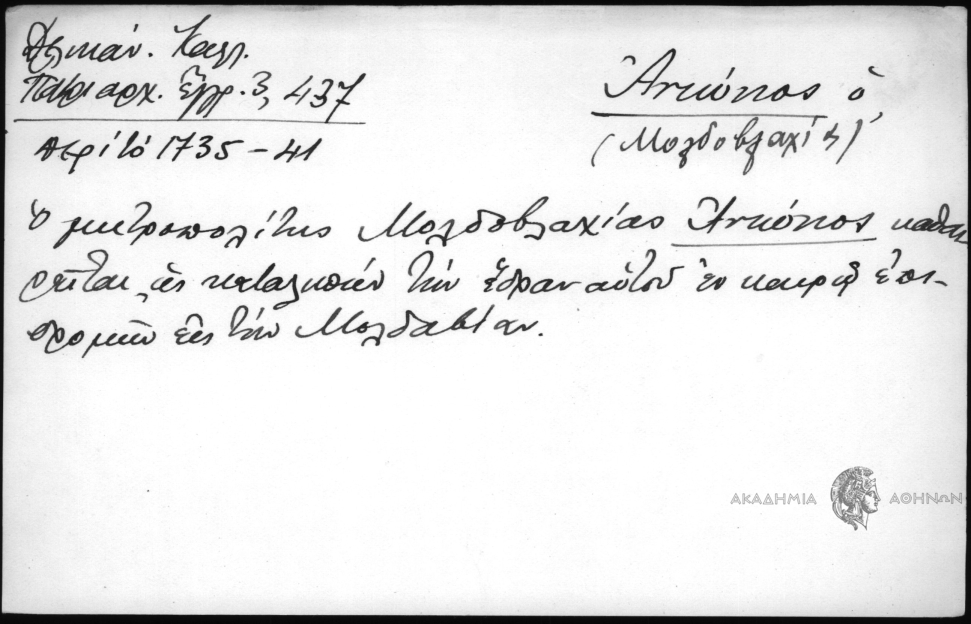 Δελικάν. Καλλ.
Πατριαρχ. Ἔγγρ. 3, 437
περὶ τὸ 1735-41
Ἀντώνιος ὁ
(Μολδοβλαχίας)
Ὁ μητροπολίτης Μολδοβλαχίας Ἀντώνιος καθαι-
ρεῖται ὡς καταλιπὼν τὴν ἕδραν αὐτοῦ ἐν καιρῷ ἐπι-
δρομῶν εἰς τὴν Μολδαβίαν.
ΑΚΑΔΗΜΙΑ ΑΘΗΝΩΝ